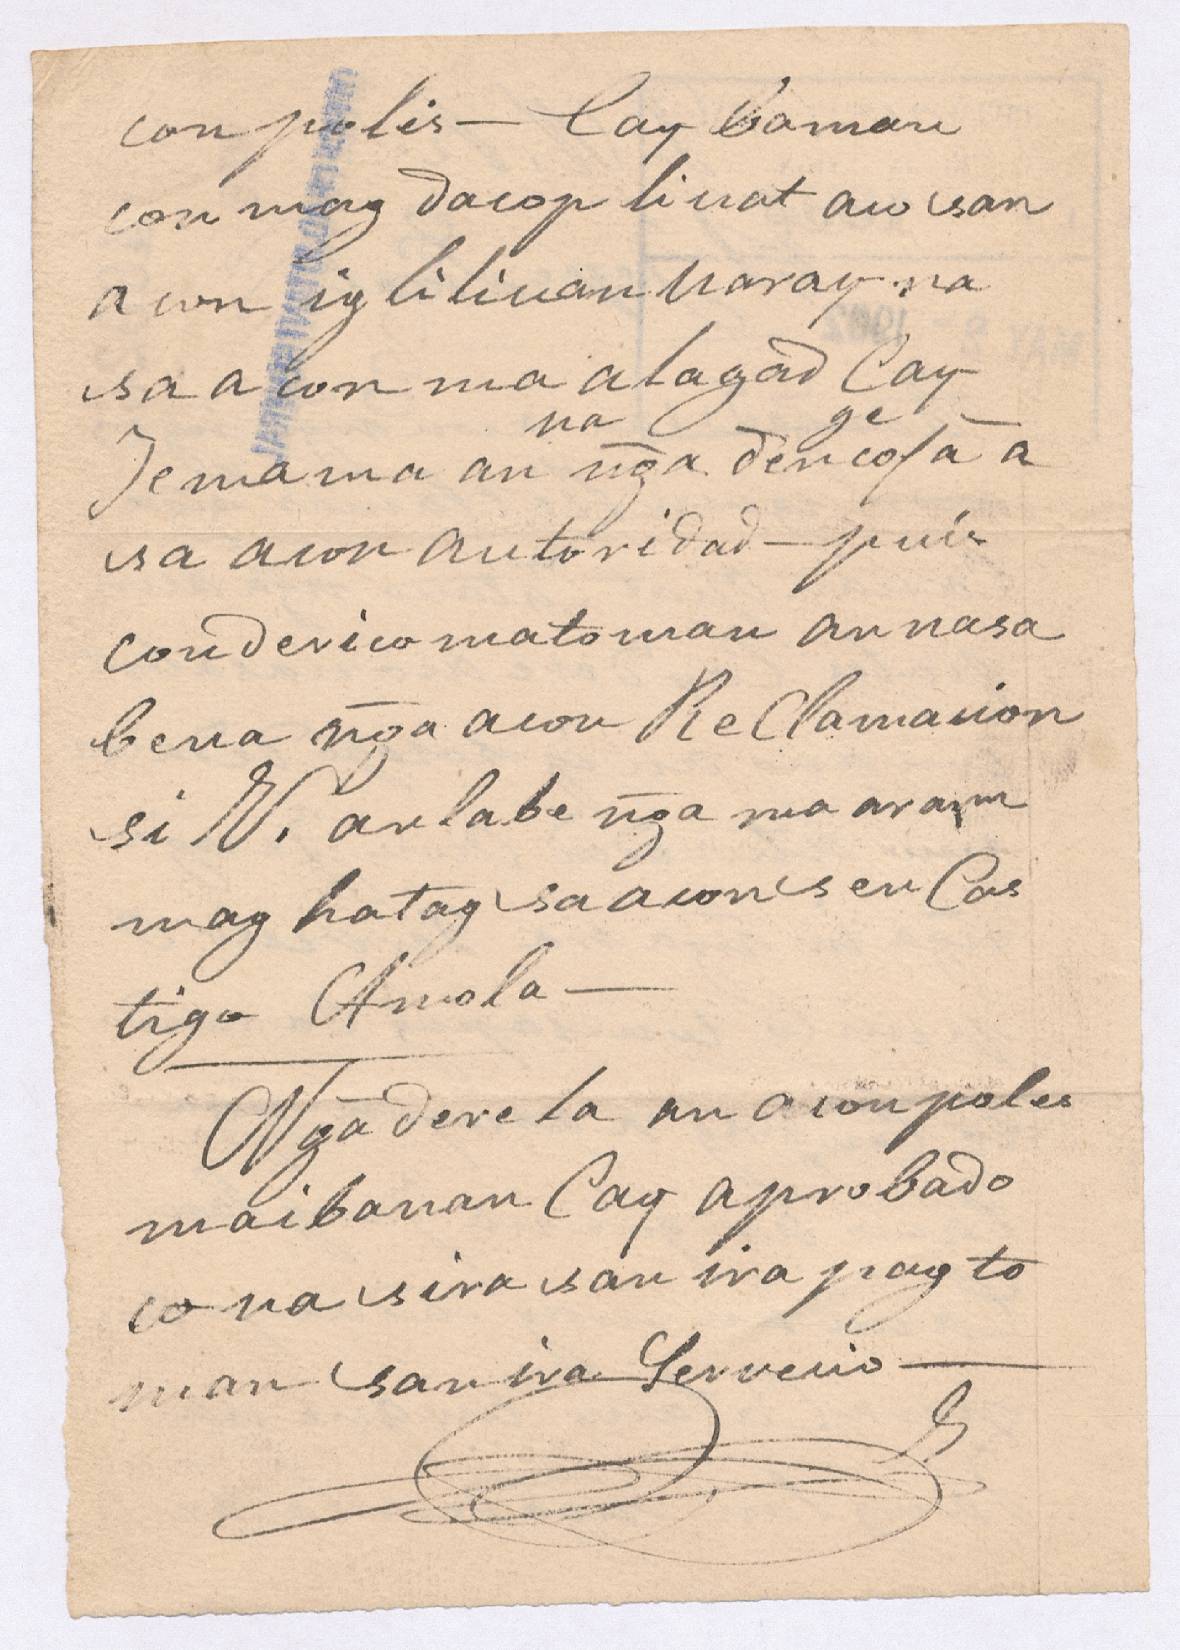 con polis — Cay baman
con mag dacop liuat aco san
acon igliliuan uaray na
sa acon ma alagad Cay
na ge
Temama an ñga dencofa a
sa acon autoridad — puis
con derico matoman an nasa
bena ñga acon ReClamacion
si V. an labe ñga ma aram
mag hatag sa acon sen Cas
tigo Amola —
Nga dere la an acon poles
maibanan Cay aprobado
co na sira san ira pag to
man san ira Servecio —
1902
MAY